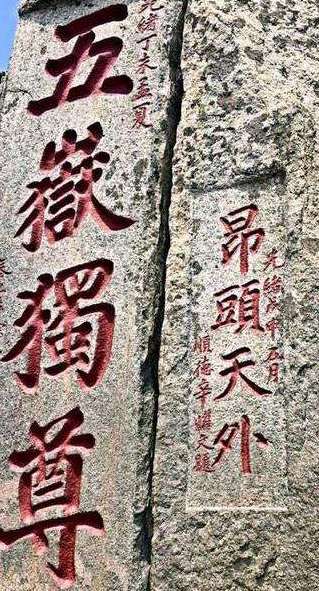 光緒戊申五月
昂頭天外
順德辛耀文題
光緒丁未孟夏
五嶽獨尊